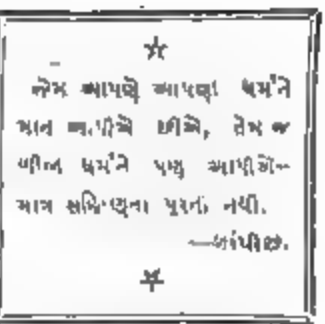 જેમ આપણે આપણા ધર્મને
માન આપીએ છીએ, તેમ જ
બીજા ધર્મને પણ આપીએ–
માત્ર સહિષ્ણુતા પૂરતી નથી.
—ગાંધીજી.